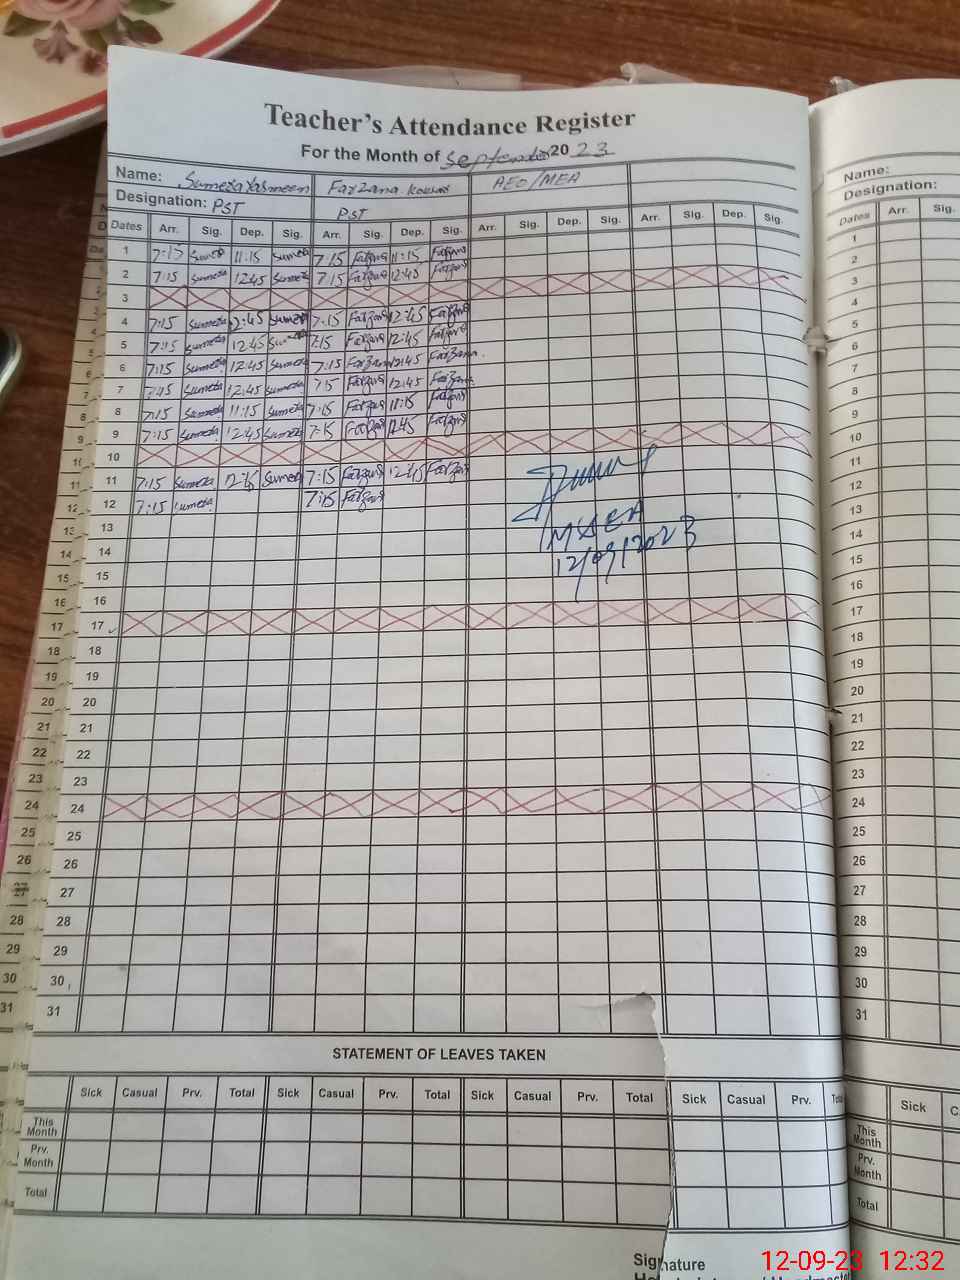 Teacher's Attendance Register
For the Month of September 2023
Name: Sumera Yasmeen Farzana Kousar AEO/MEA
Designation: PST PST
Dates Arr. Sig. Dep. Sig. Arr. Sig. Dep. Sig. Arr. Sig. Dep. Sig. Arr. Sig. Dep. Sig.
1 7:15 Sumera 11:15 Sumera 7:15 Farzana 11:15 Farzana
2 7:15 Sumera 12:45 Sumera 7:15 Farzana 12:45 Farzana
3
4 7:15 Sumera 12:45 Sumera 7:15 Farzana 12:45 Farzana
5 7:15 Sumera 12:45 Sumera 7:15 Farzana 12:45 Farzana
6 7:15 Sumera 12:45 Sumera 7:15 Farzana 12:45 Farzana
7 7:15 Sumera 12:45 Sumera 7:15 Farzana 12:45 Farzana
8 7:15 Sumera 11:15 Sumera 7:15 Farzana 11:15 Farzana
9 7:15 Sumera 12:45 Sumera 7:15 Farzana 12:45 Farzana
10
11 7:15 Sumera 12:45 Sumera 7:15 Farzana 12:45 Farzana
12 7:15 Sumera 7:15 Farzana
MEA
12/09/2023
13
14
15
16
17
18
19
20
21
22
23
24
25
26
27
28
29
30
31
STATEMENT OF LEAVES TAKEN
Sick Casual Prv. Total Sick Casual Prv. Total Sick Casual Prv. Total Sick Casual Prv.
This Month
Prv. Month
Total
Signature
Name:
Designation:
Dates Arr. Sig.
1
2
3
4
5
6
7
8
9
10
11
12
13
14
15
16
17
18
19
20
21
22
23
24
25
26
27
28
29
30
31
Sick
This Month
Prv. Month
Total
12-09-23 12:32